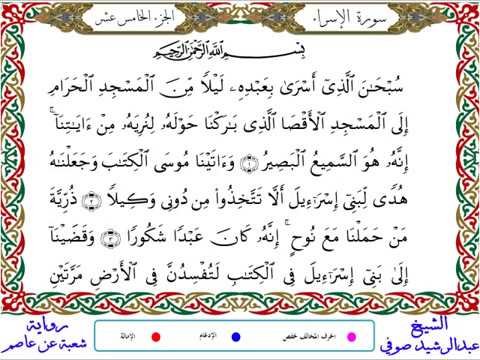 سورة الإسراء
الجزء الخامس عشر
بِسْمِ اللَّهِ الرَّحْمَٰنِ الرَّحِيمِ
سُبْحَٰنَ الَّذِىٓ أَسْرَىٰ بِعَبْدِهِۦ لَيْلًا مِّنَ الْمَسْجِدِ الْحَرَامِ
إِلَى الْمَسْجِدِ الْأَقْصَا الَّذِى بَٰرَكْنَا حَوْلَهُۥ لِنُرِيَهُۥ مِنْ ءَايَٰتِنَآ ۚ
إِنَّهُۥ هُوَ السَّمِيعُ الْبَصِيرُ ١ وَءَاتَيْنَا مُوسَى الْكِتَٰبَ وَجَعَلْنَٰهُ
هُدًى لِّبَنِىٓ إِسْرَٰٓءِيلَ أَلَّا تَتَّخِذُوا۟ مِن دُونِى وَكِيلًا ٢ ذُرِّيَّةَ
مَنْ حَمَلْنَا مَعَ نُوحٍ ۚ إِنَّهُۥ كَانَ عَبْدًا شَكُورًا ٣ وَقَضَيْنَآ
إِلَىٰ بَنِىٓ إِسْرَٰٓءِيلَ فِى الْكِتَٰبِ لَتُفْسِدُنَّ فِى الْأَرْضِ مَرَّتَيْنِ
الشيخ
عبدالرشيد صوفي
الحرف المخالف لحفص
الإدغام
الإمالة
رواية
شعبة عن عاصم